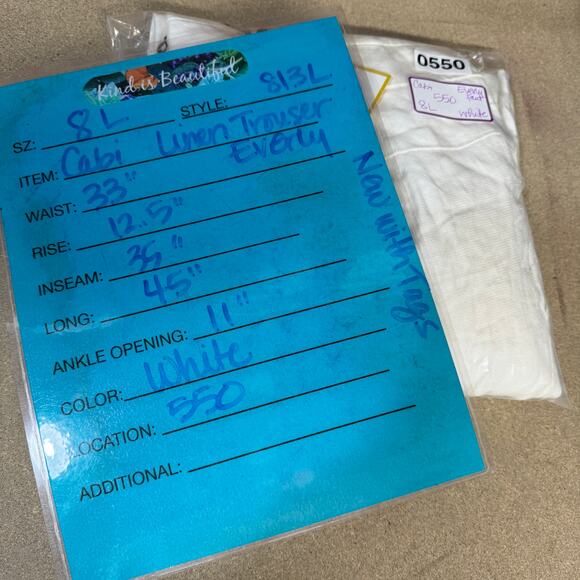 Kind is Beautiful
SZ: 8 L STYLE: 813L
ITEM: Cabi Linen Trouser
Everly
WAIST: 33"
RISE: 12.5"
INSEAM: 35"
LONG: 45"
ANKLE OPENING: 11"
COLOR: White
LOCATION: 550
ADDITIONAL:
New with Tags
0550
Cabi
550
8L White